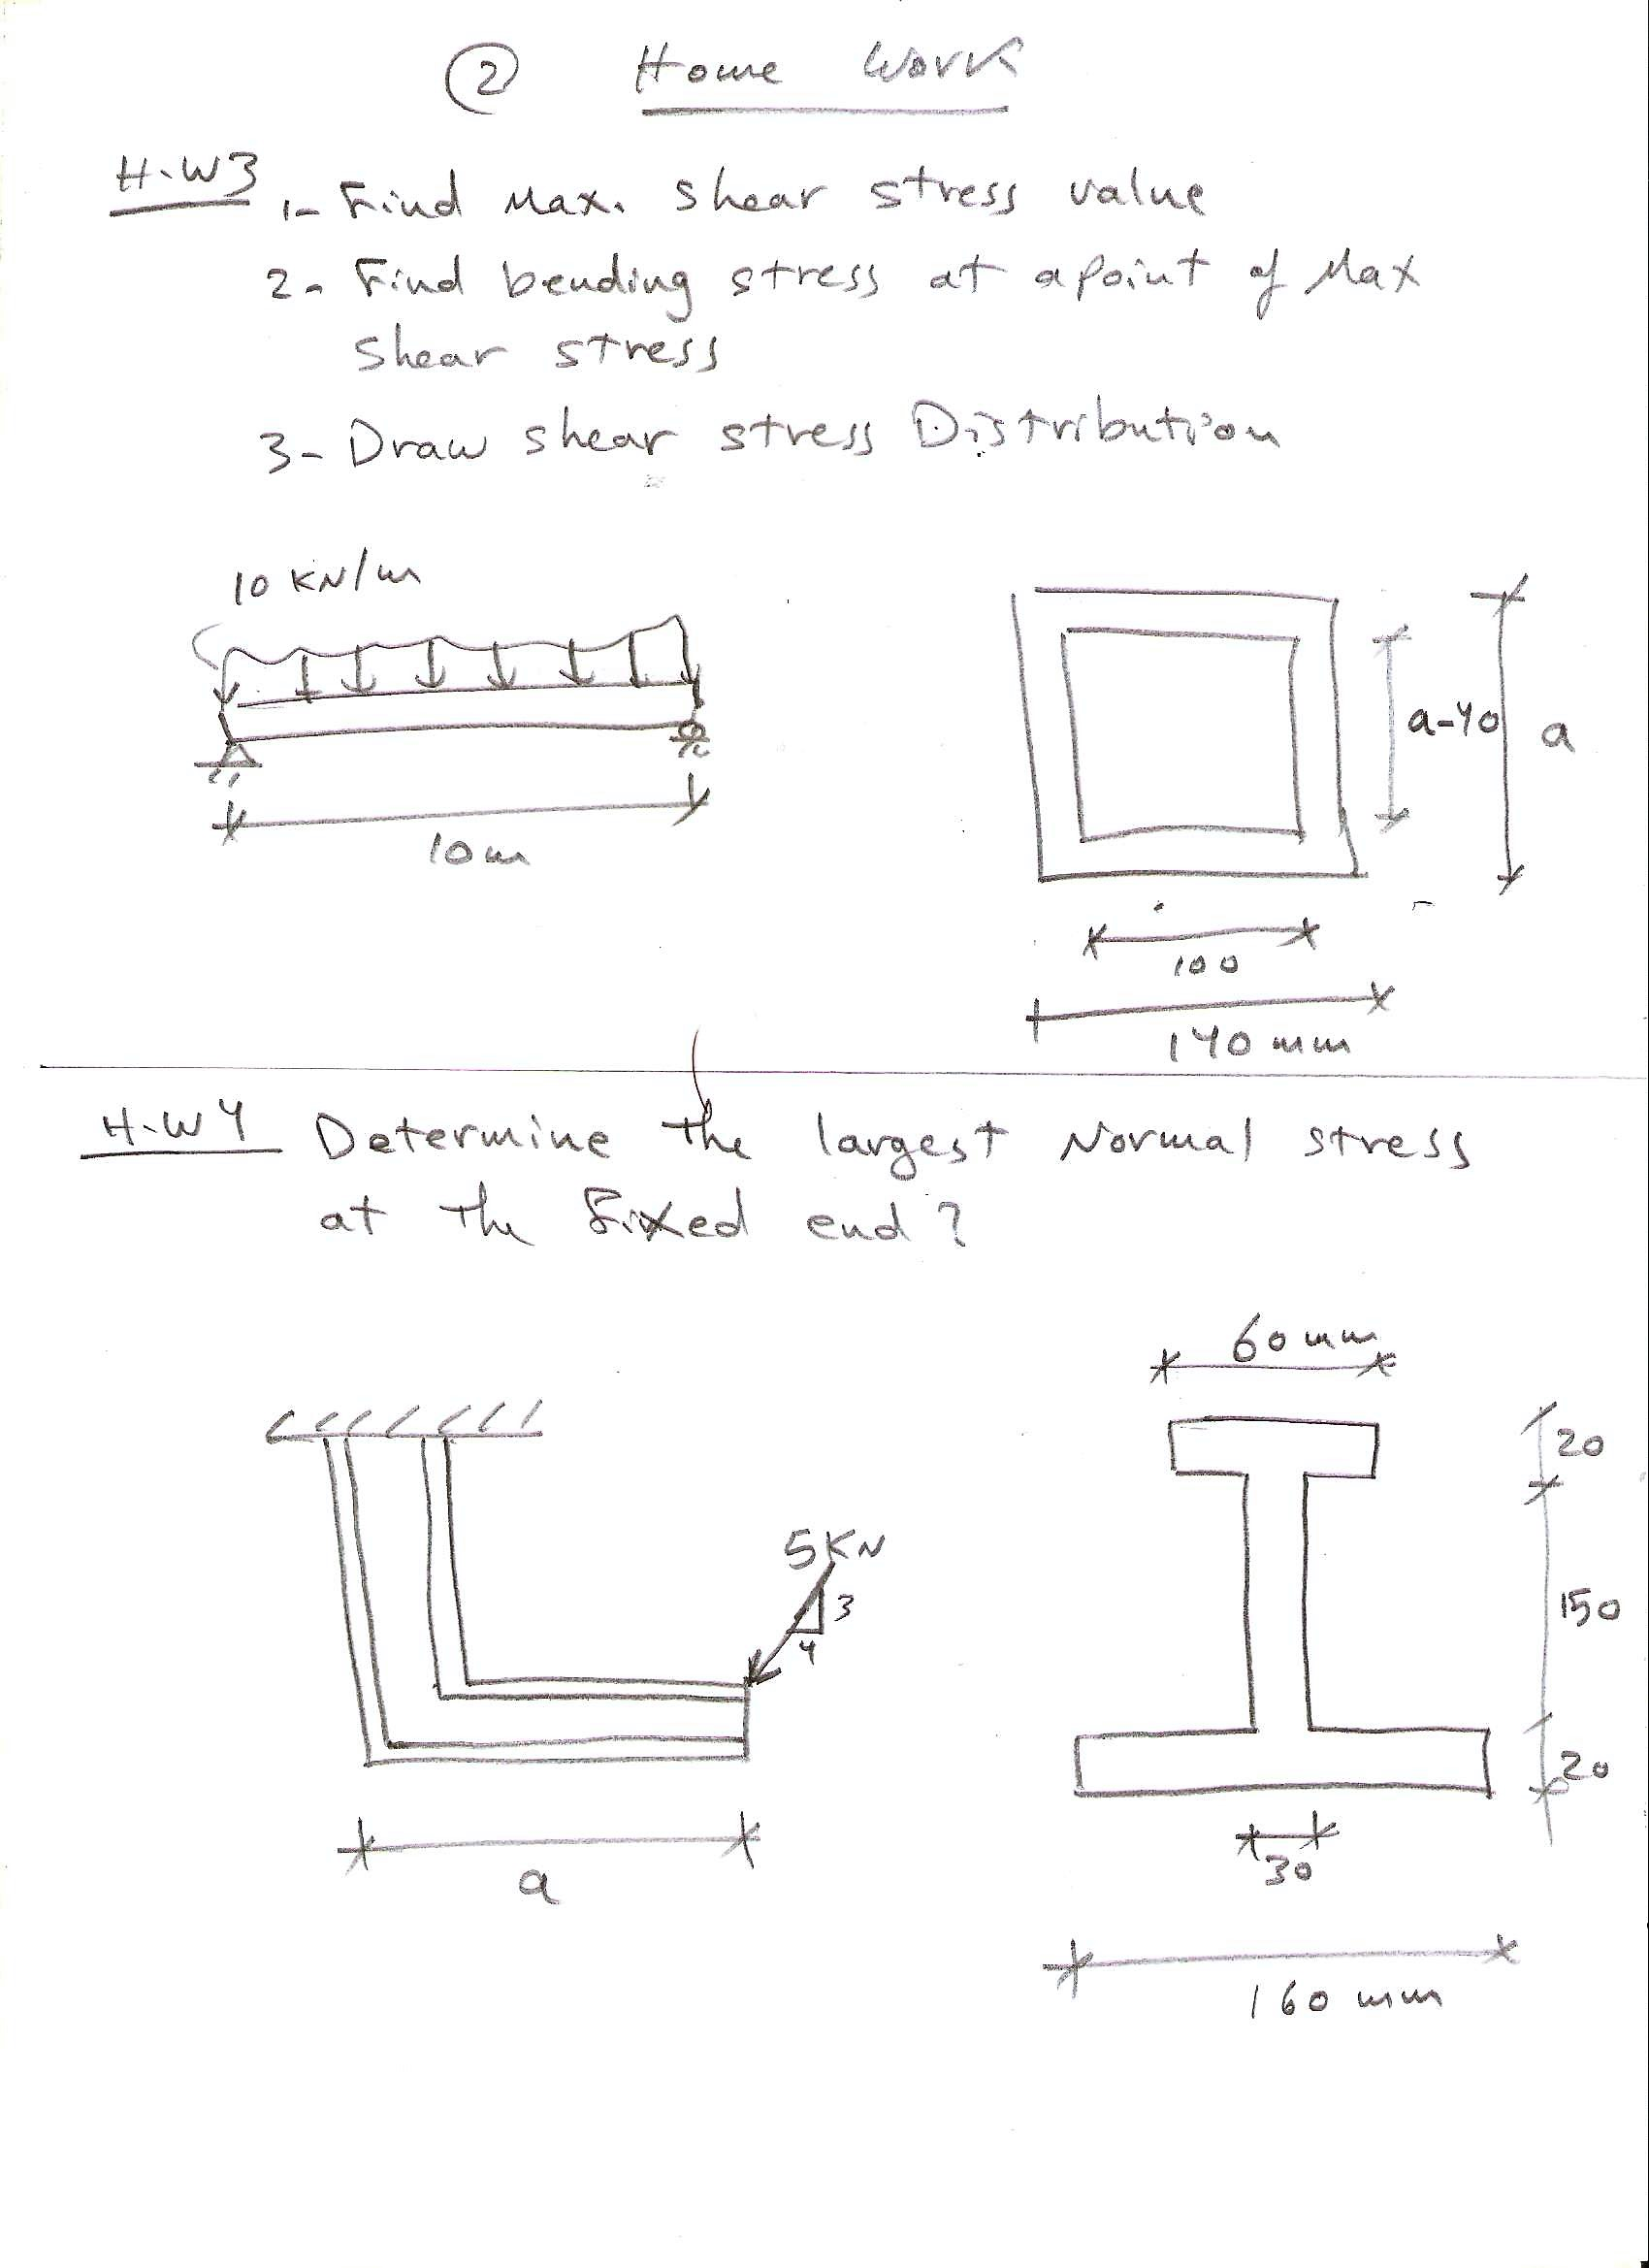 ② Home Work
H.W3 1- Find Max. Shear stress value
2- Find bending stress at a point of Max
Shear stress
3- Draw shear stress Distribution
10 KN/m
10 m
a-40
a
100
140 mm
H.W4 Determine the largest Normal stress
at the Fixed end?
60 mm
20
5KN
3
4
150
20
30
a
160 mm